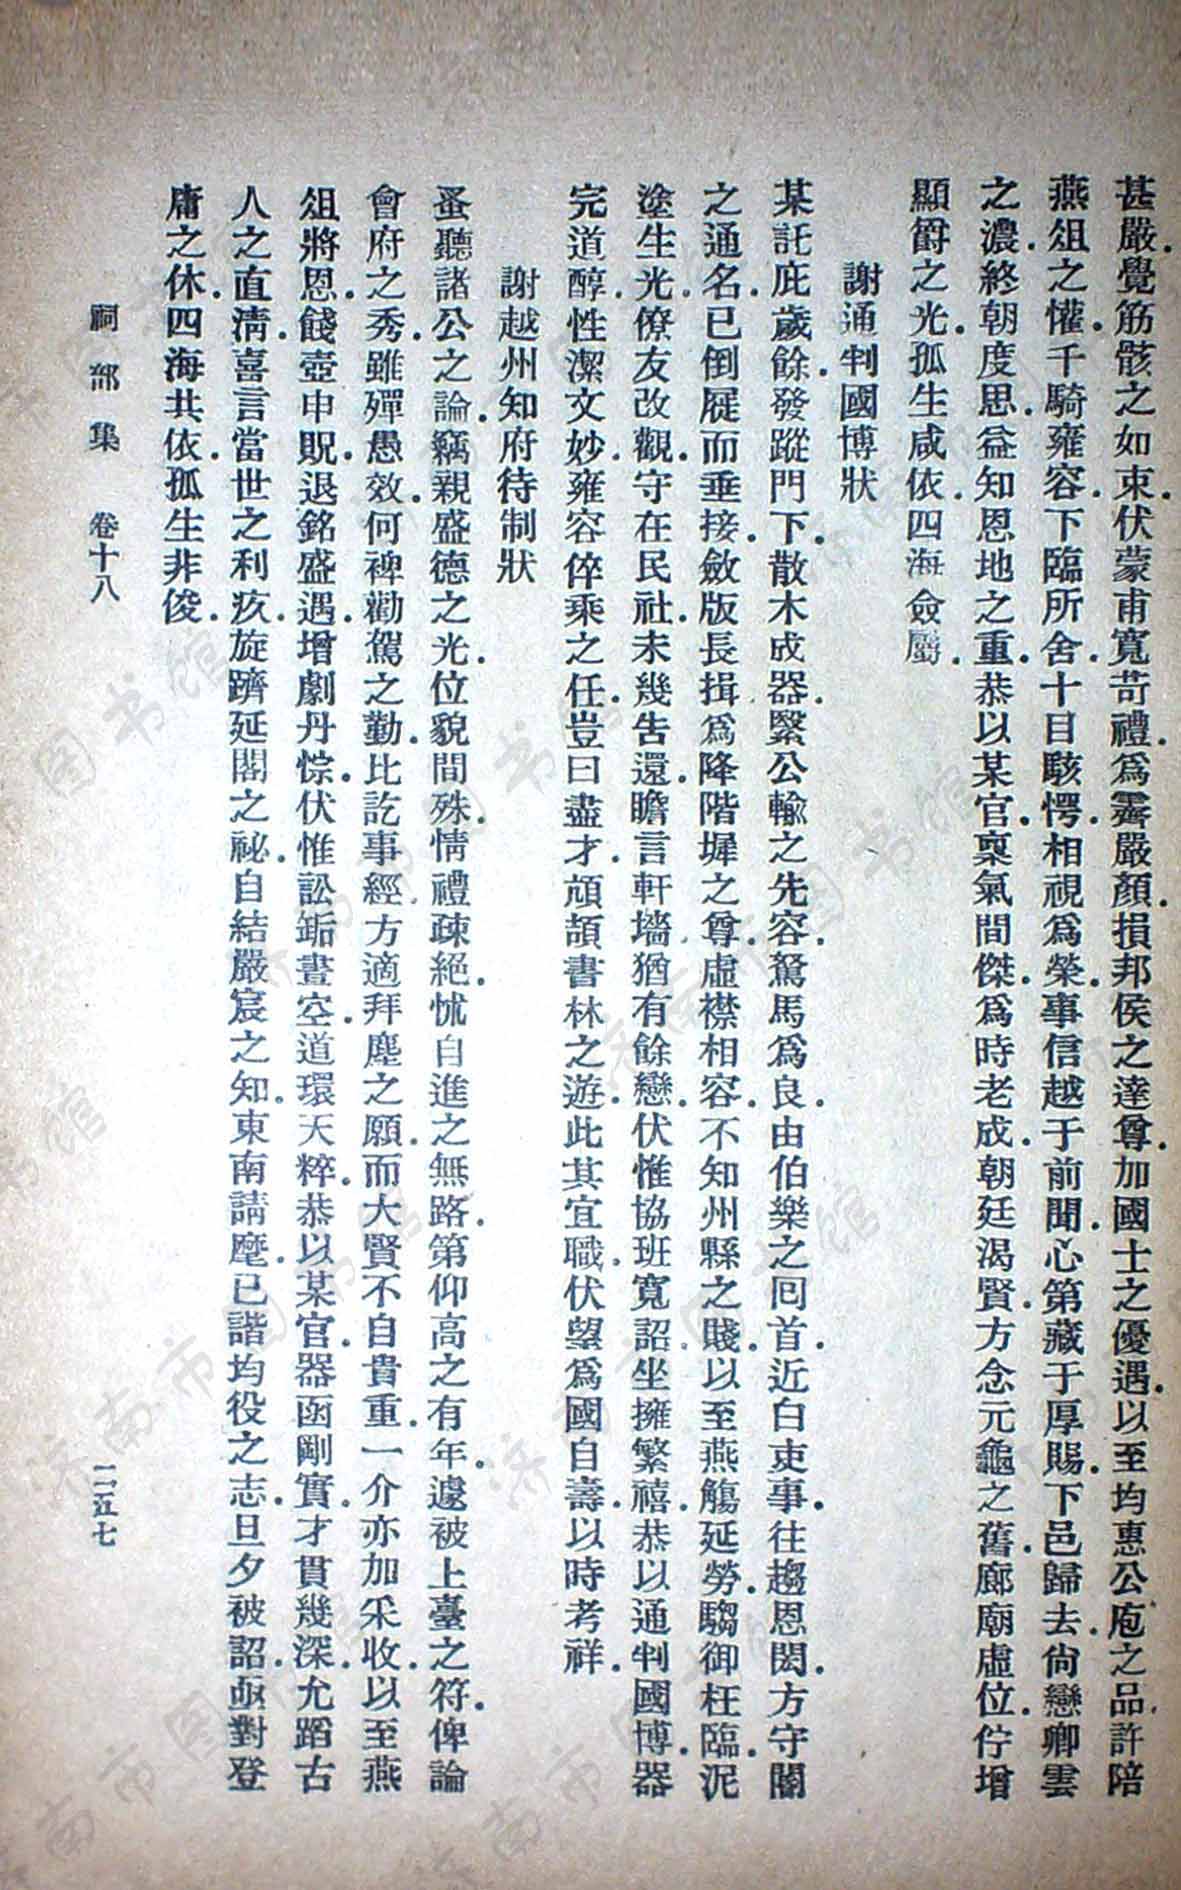 甚嚴．覺筋骸之如束．伏蒙甫寬苛禮．爲霽嚴顏．損邦侯之達尊．加國士之優遇．以至均惠公庖之品．許陪
燕俎之懽．千騎雍容．下臨所舍．十目駭愕．相視爲榮．事信越于前聞．心第藏于厚賜．下邑歸去．尙戀卿雲
之濃．終朝度思．益知恩地之重．恭以某官．稟氣間傑．爲時老成．朝廷渴賢．方念元龜之舊．廊廟虛位．佇增
顯爵之光．孤生咸依．四海僉屬．
謝通判國博狀
某託庇歲餘．發蹤門下．散木成器．緊公輸之先容．駑馬爲良．由伯樂之回首．近白吏事．往趨恩閎．方守閽
之通名．已倒屣而垂接．斂版長揖．爲降階墀之尊．虛襟相容．不知州縣之賤．以至燕觴延勞．騶御枉臨．泥
塗生光．僚友改觀．守在民社．未幾告還．瞻言軒墻．猶有餘戀．伏惟協班寬詔．坐擁繁禧．恭以通判國博．器
完道醇．性潔文妙．雍容倅乘之任．豈曰盡才．頏頡書林之遊．此其宜職．伏望爲國自壽．以時考祥．
謝越州知府待制狀
蚤聽諸公之論．竊親盛德之光．位貌間殊．情禮疎絕．怵自進之無路．第仰高之有年．遽被上臺之符．俾論
會府之秀．雖殫愚效．何裨勸駕之勤．比訖事經．方適拜塵之願．而大賢不自貴重．一介亦加采收．以至燕
俎將恩．餞壺申貺．退銘盛遇．增劇丹悰．伏惟訟缿晝空．道環天粹．恭以某官．器函剛實．才貫幾深．允蹈古
人之直淸．喜言當世之利疚．旋躋延閣之祕．自結嚴宸之知．東南請麾．已諧均役之志．旦夕被詔．亟對登
庸之休．四海共依．孤生非俊．
祠部集　卷十八
二五七